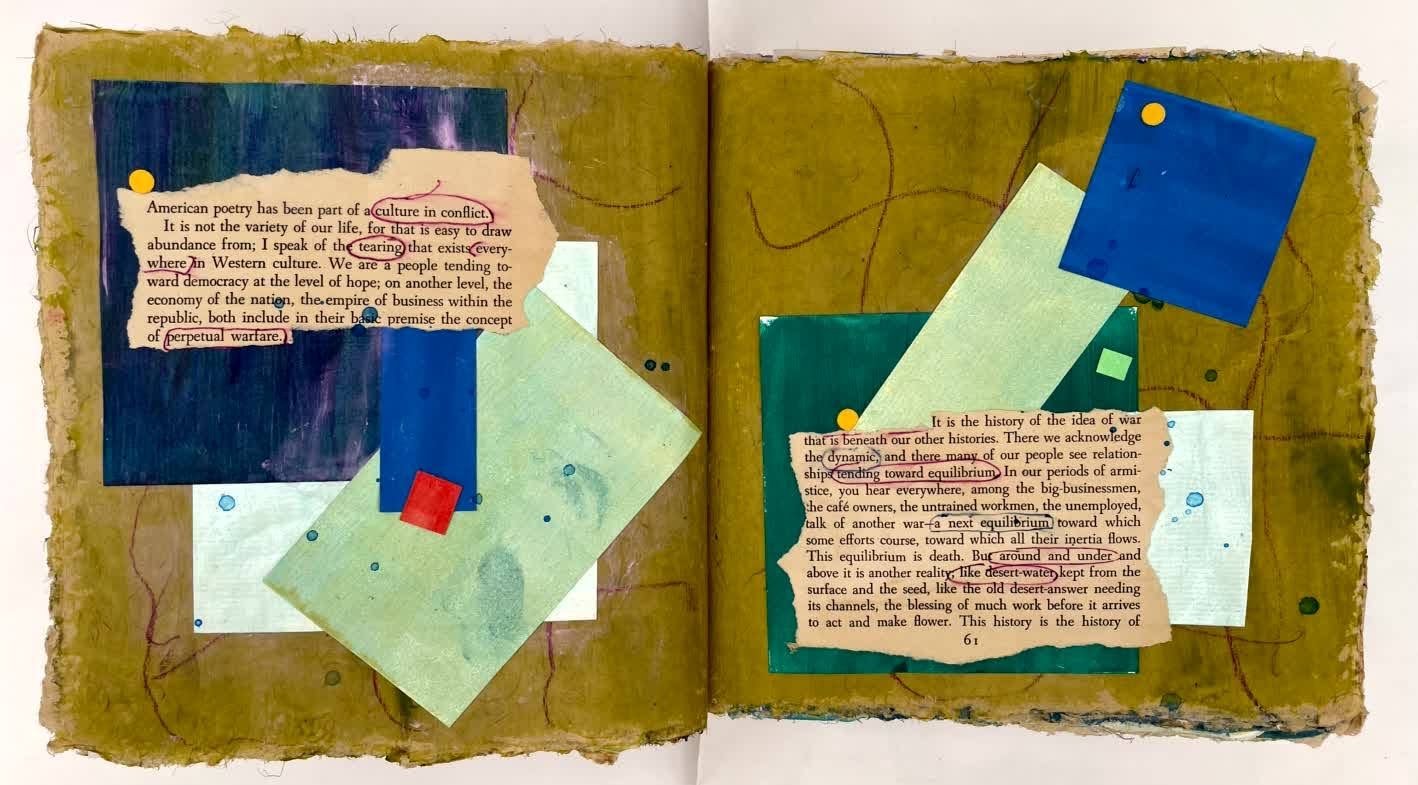 American poetry has been part of a culture in conflict.
It is not the variety of our life, for that is easy to draw
abundance from; I speak of the tearing that exists every-
where in Western culture. We are a people tending to-
ward democracy at the level of hope; on another level, the
economy of the nation, the empire of business within the
republic, both include in their basic premise the concept
of perpetual warfare.
It is the history of the idea of war
that is beneath our other histories. There we acknowledge
the dynamic, and there many of our people see relation-
ships tending toward equilibrium. In our periods of armi-
stice, you hear everywhere, among the big-businessmen,
the café owners, the untrained workmen, the unemployed,
talk of another war—a next equilibrium toward which
some efforts course, toward which all their inertia flows.
This equilibrium is death. But around and under and
above it is another reality, like desert-water kept from the
surface and the seed, like the old desert-answer needing
its channels, the blessing of much work before it arrives
to act and make flower. This history is the history of
61